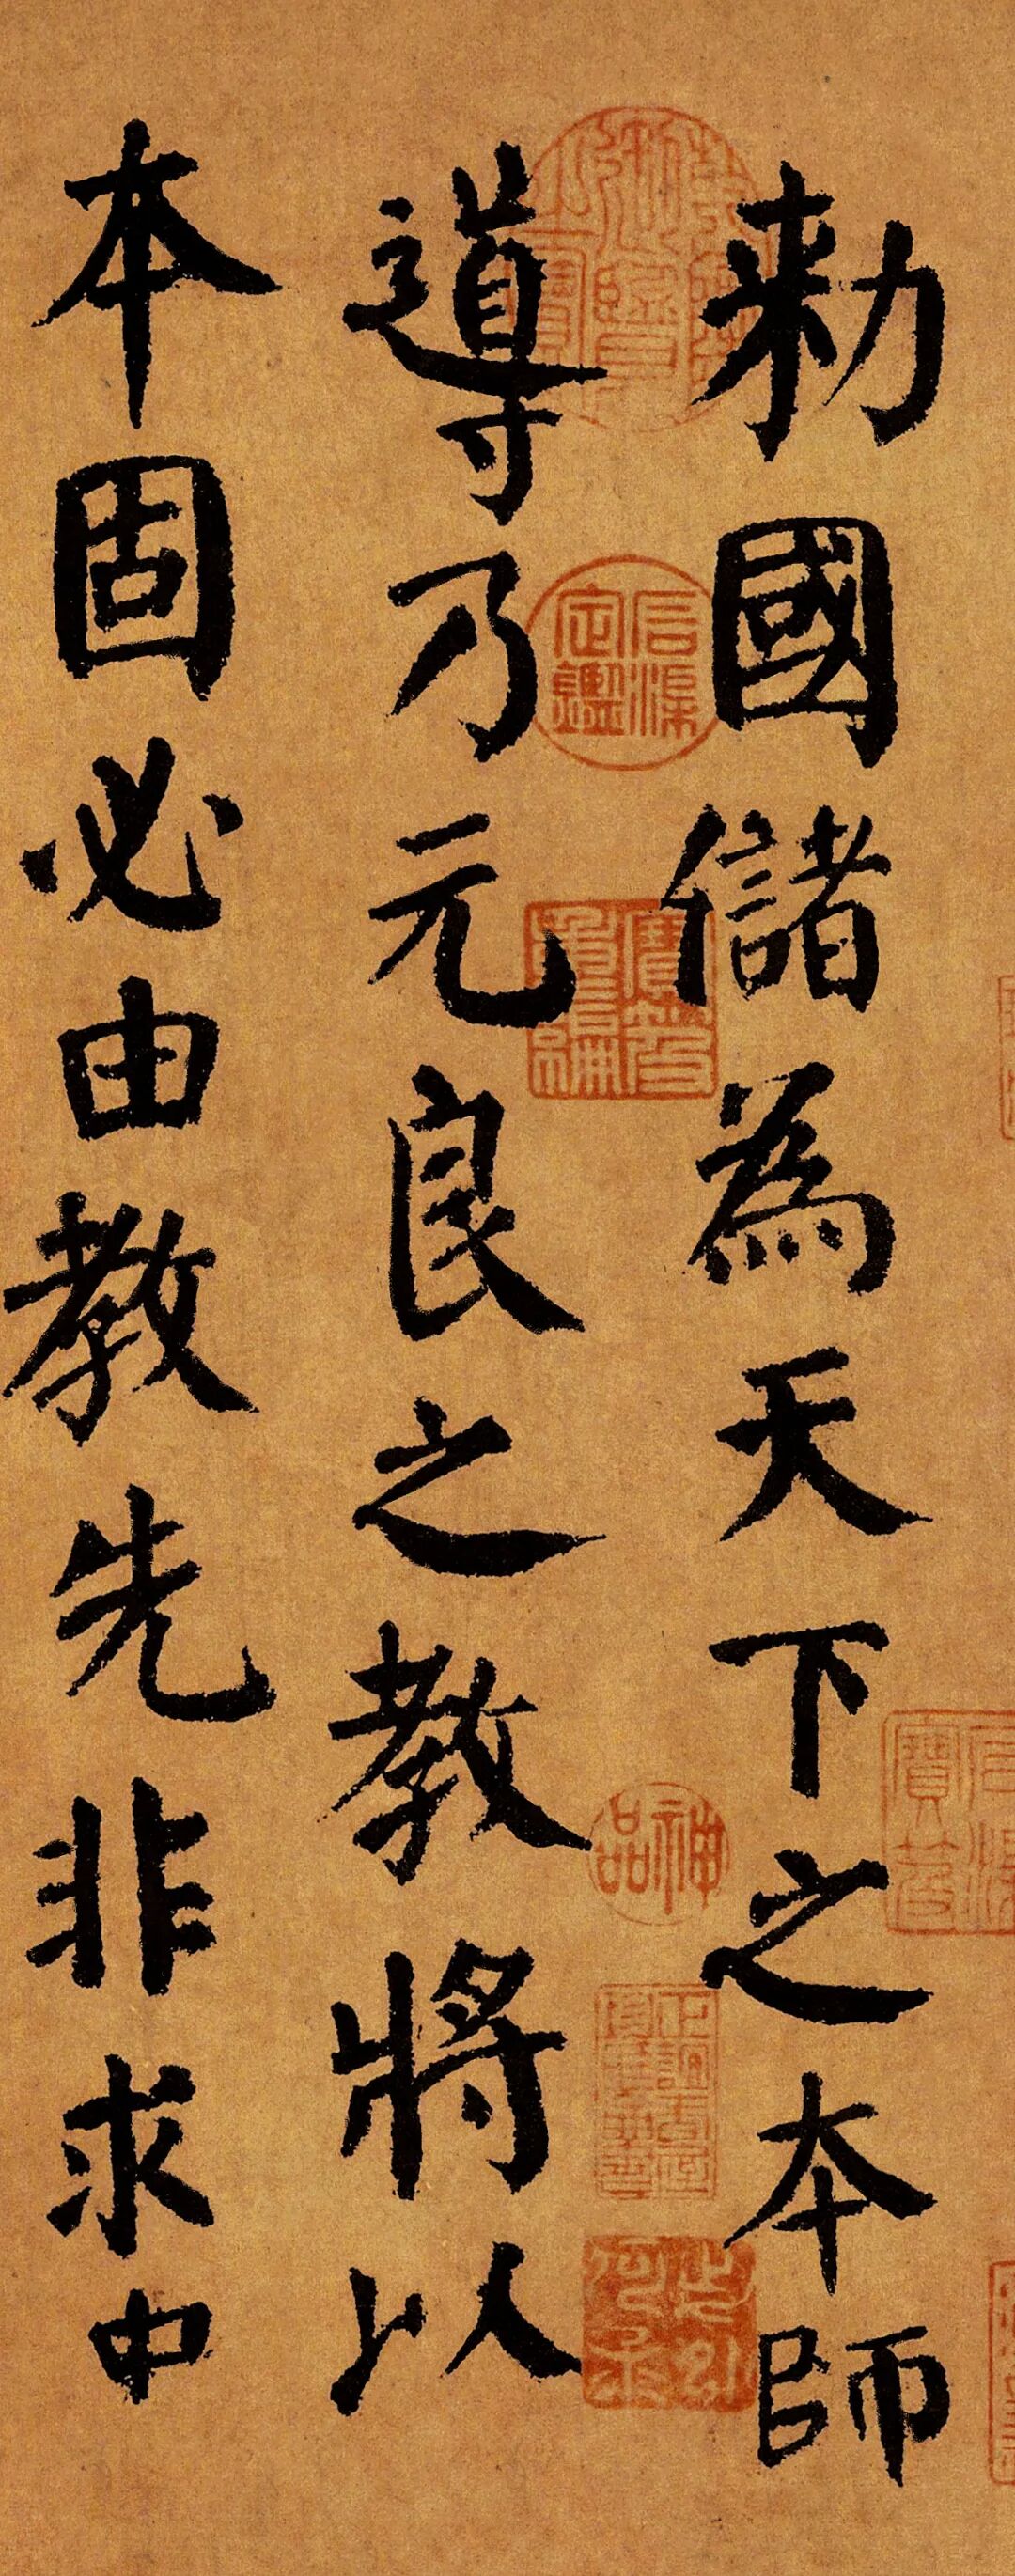 勑國儲為天下之本師
導乃元良之教將以
本固必由教先非求中
神品